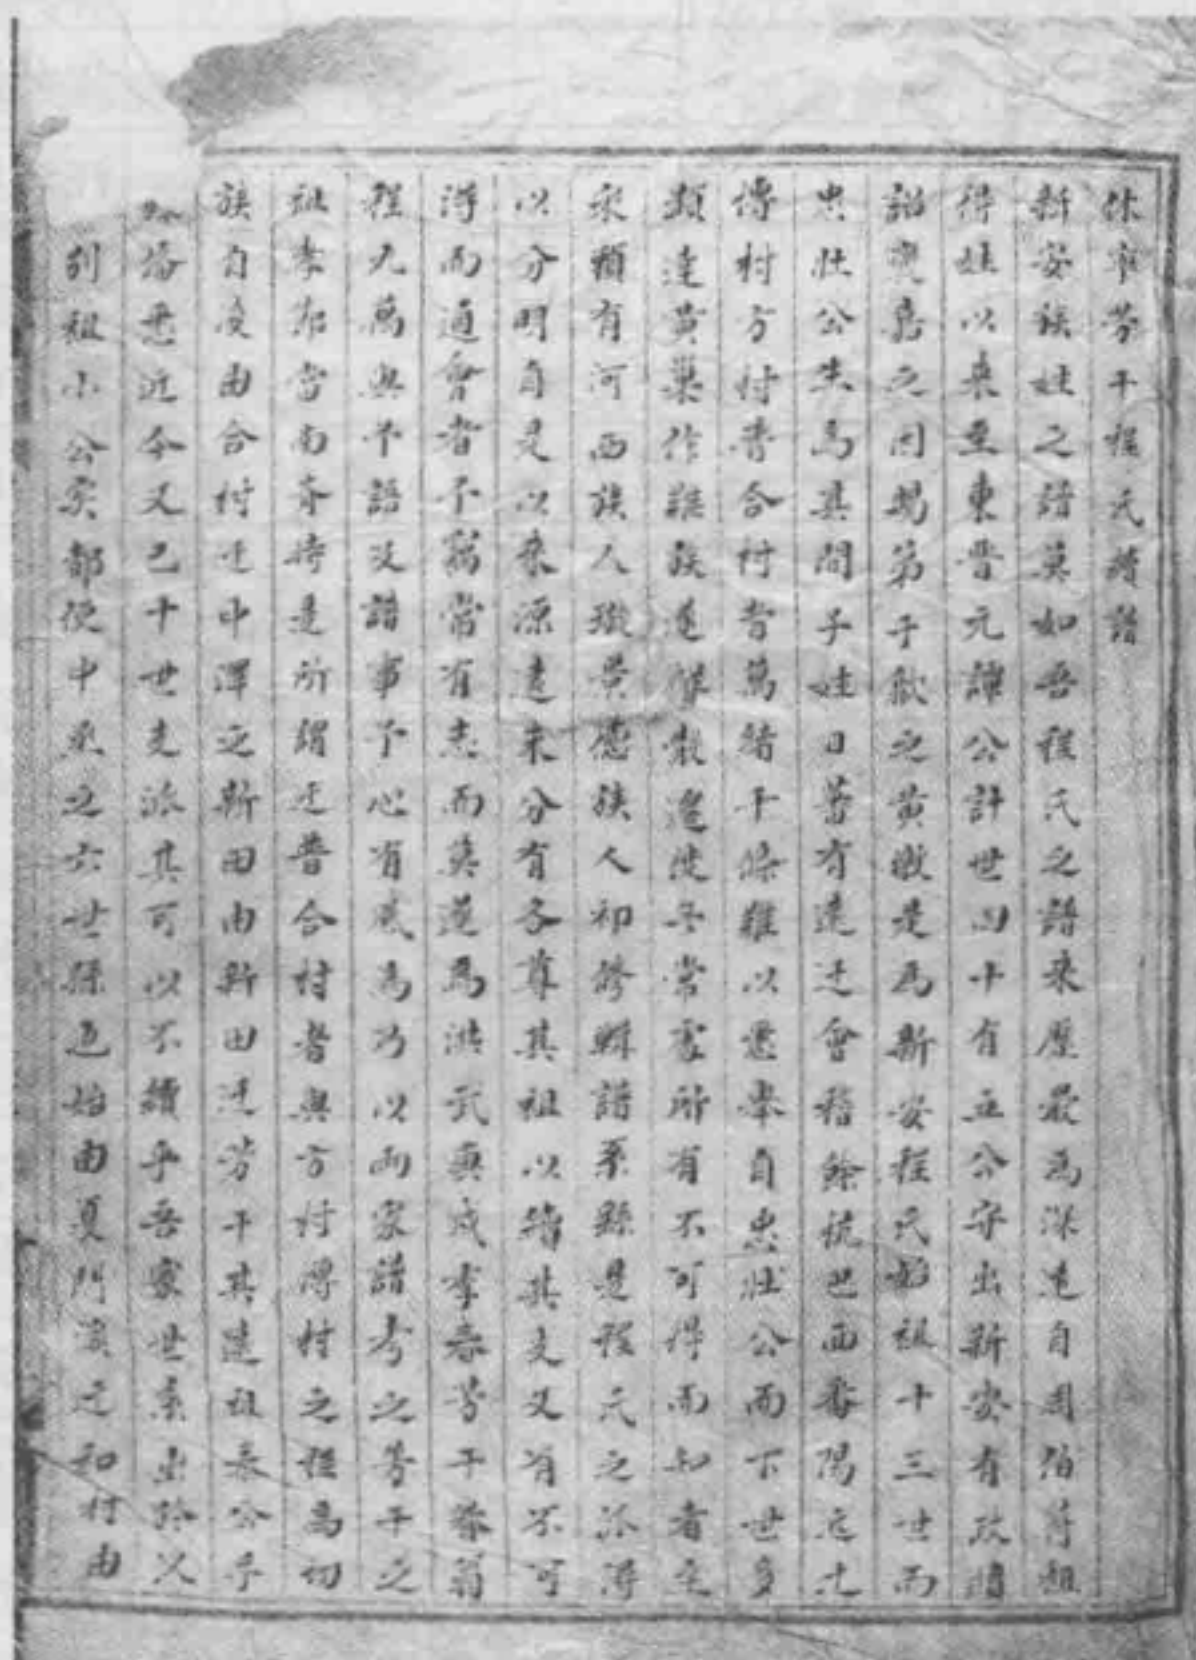 休寧芳干程氏續譜
新安族姓之譜莫如吾程氏之譜來歷最為深遠自周伯符祖
得姓以來至東晉元譚公計世四十有五公守出新安有政績
詔褒嘉之因賜第于歙之黄墩是為新安程氏始祖十三世而
忠壯公生焉其間子姓日蕃有遠迁會稽餘杭巴西番陽迄
村方村晋合村者萬緒千條難以悉舉自忠壯公而下世多
顯達黄巢作難族遂散邈使子常所有不可得而知者至
宋稍有河西族人璇景德族人初修輯譜系繇是程氏之派得
以分明自是以來源遠末分有各尊其祖以續其支又有不可
得而通會者予竊嘗有志而莫遂焉洪武庚戌季春芳干
程九萬與予語及譜事予心有感焉乃以兩家譜考之芳干之
祖當南齊時是所謂迁晋合村者與方村村之程為切
族自後由合村迁中澤之新田由新田迁芳干其遠祖公乎
悉近今又已十世支派其可以不續乎吾家世系出於
別祖小公实都使中丞之六世孫迺始由夏門迁和村由